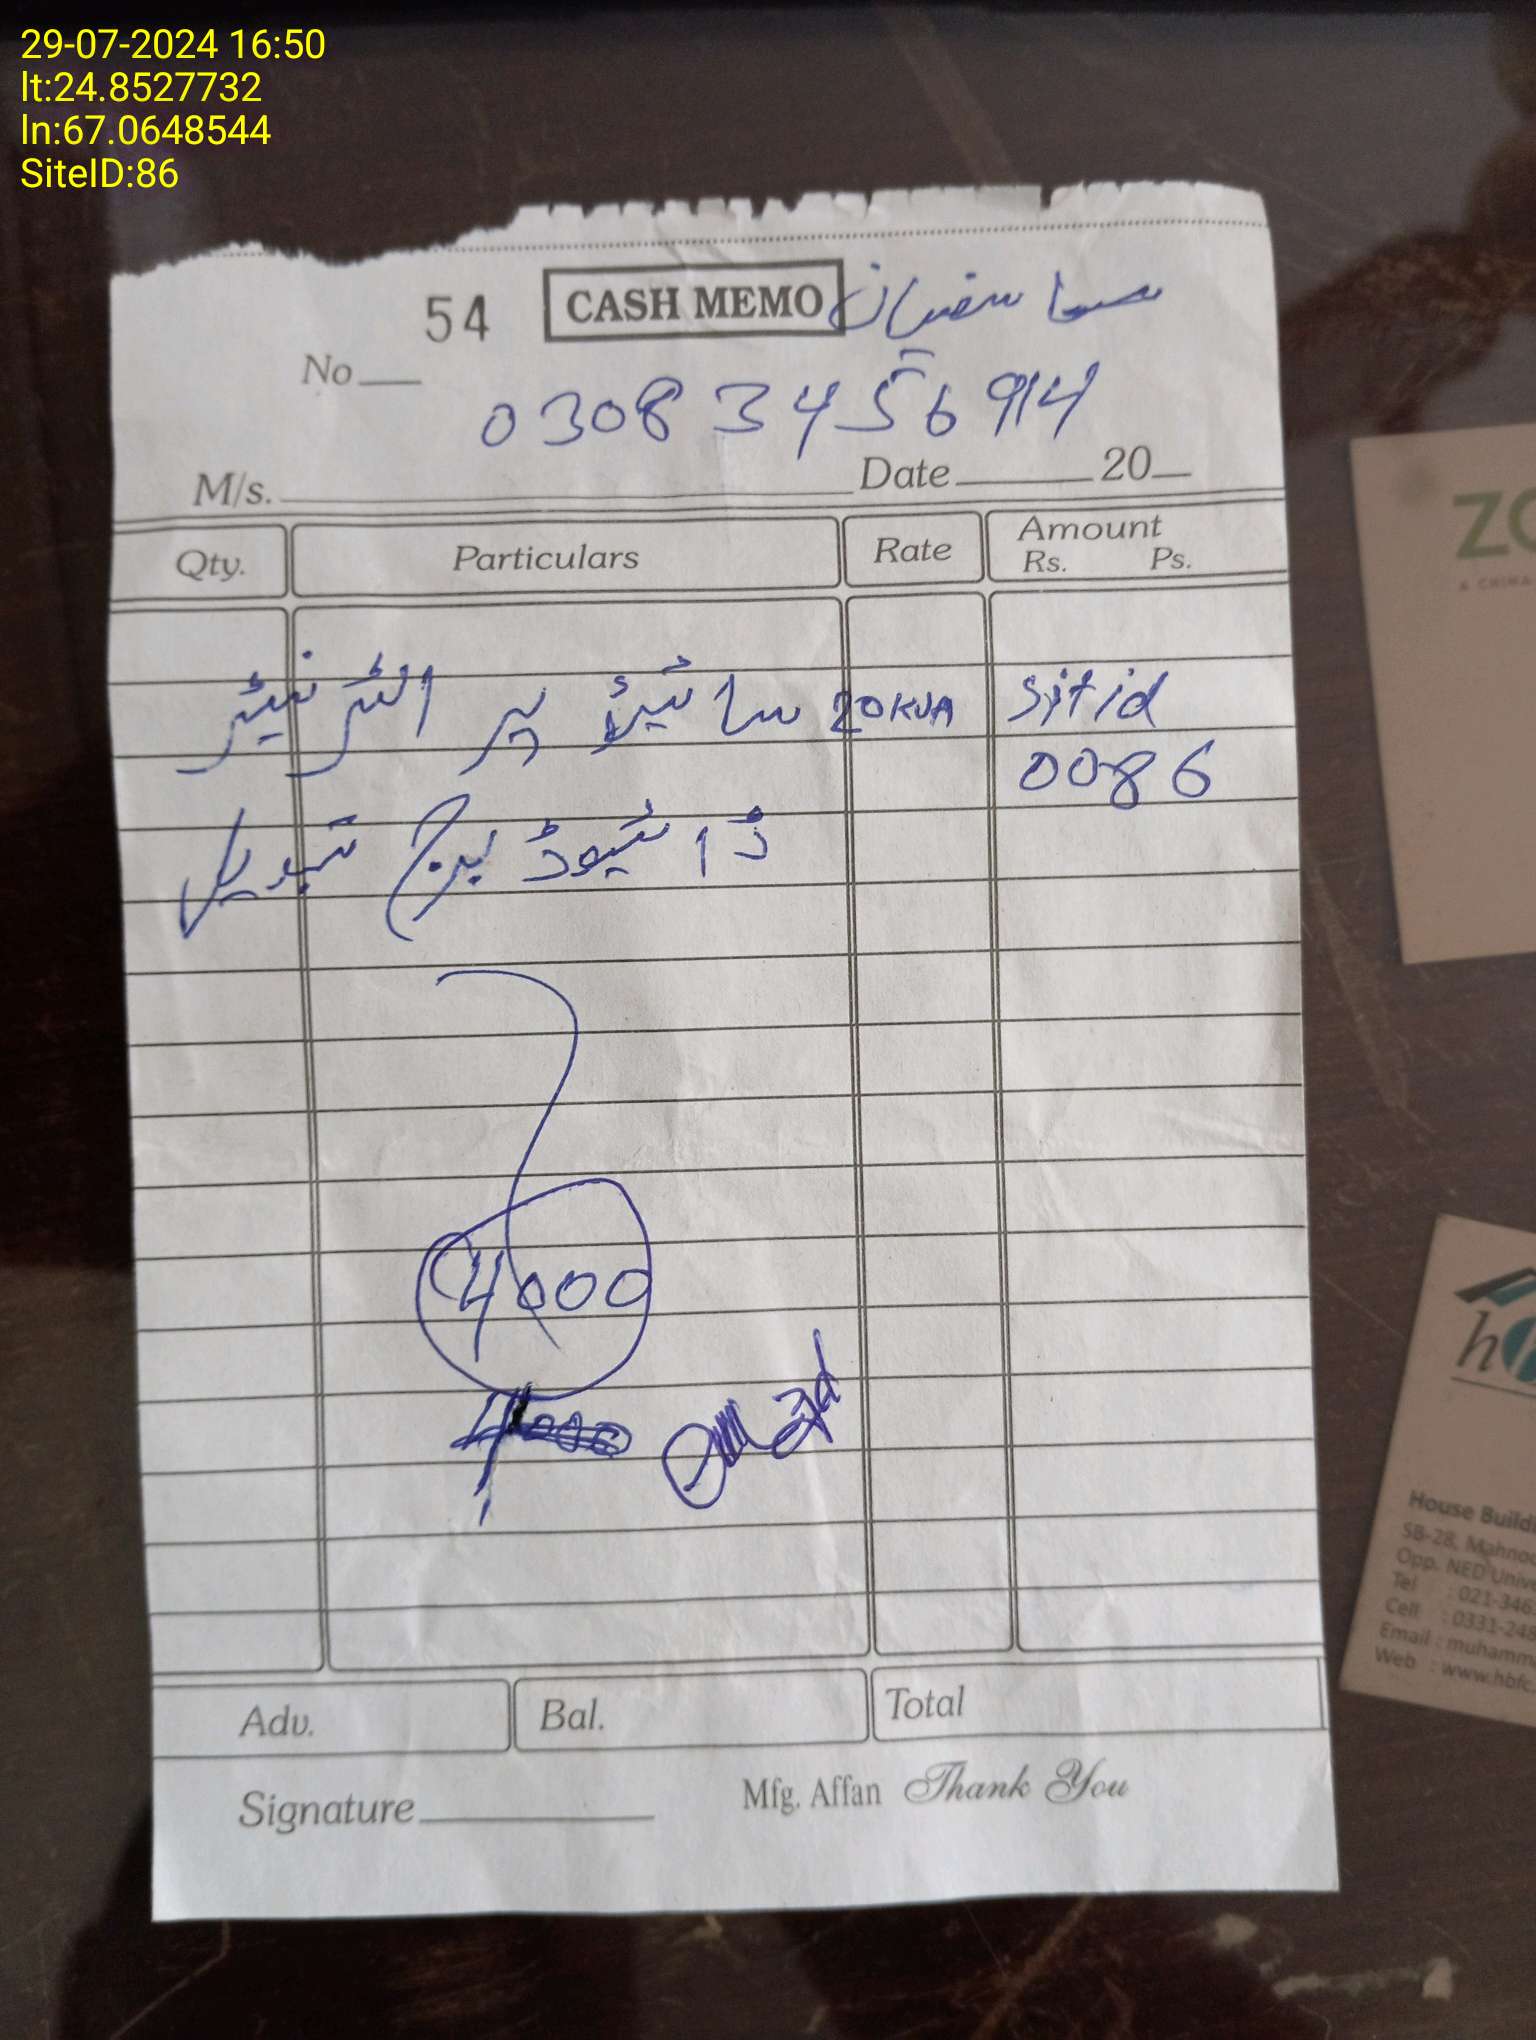 29-07-2024 16:50
lt:24.8527732
ln:67.0648544
SiteID:86
54 CASH MEMO سفیان
No
0308 3456914
M/s. Date 20
Qty. Particulars Rate Amount
Rs. Ps.
20KVA سائیڈ پر الٹرنیٹر
Sitid
0086
ڈائیوڈ برج تبدیل
4000
4000
Adv. Bal. Total
Signature Mfg. Affan Thank You
ZO
h
House Buildi
SB-28, Mahmo
Opp. NED Unive
Tel : 021-346
Cell : 0331-248
Email : muhamma
Web : www.hbfc.